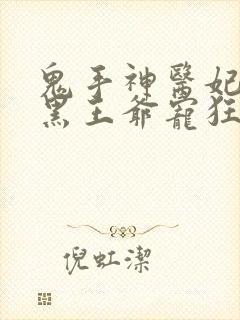 鬼手神醫妃
黑王爺寵狂
倪虹潔